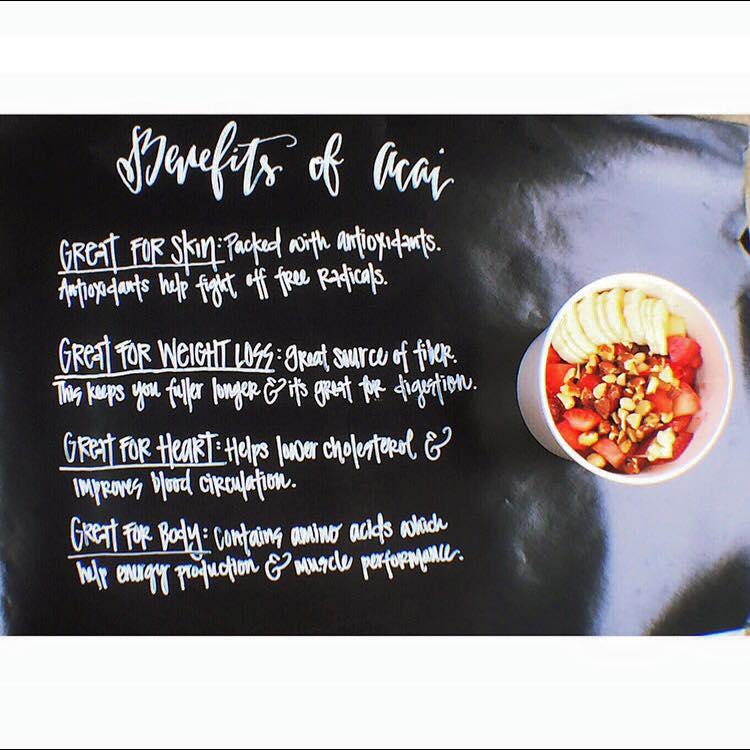 Benefits of Acai
GREAT FOR SKIN: Packed with antioxidants.
Antioxidants help fight off free Radicals.
GREAT FOR WEIGHT LOSS: Great source of fiber.
This keeps you fuller longer & it's great for digestion.
GREAT FOR HEART: Helps lower cholesterol &
improves blood circulation.
GREAT FOR BODY: Contains amino acids which
help energy production & muscle performance.